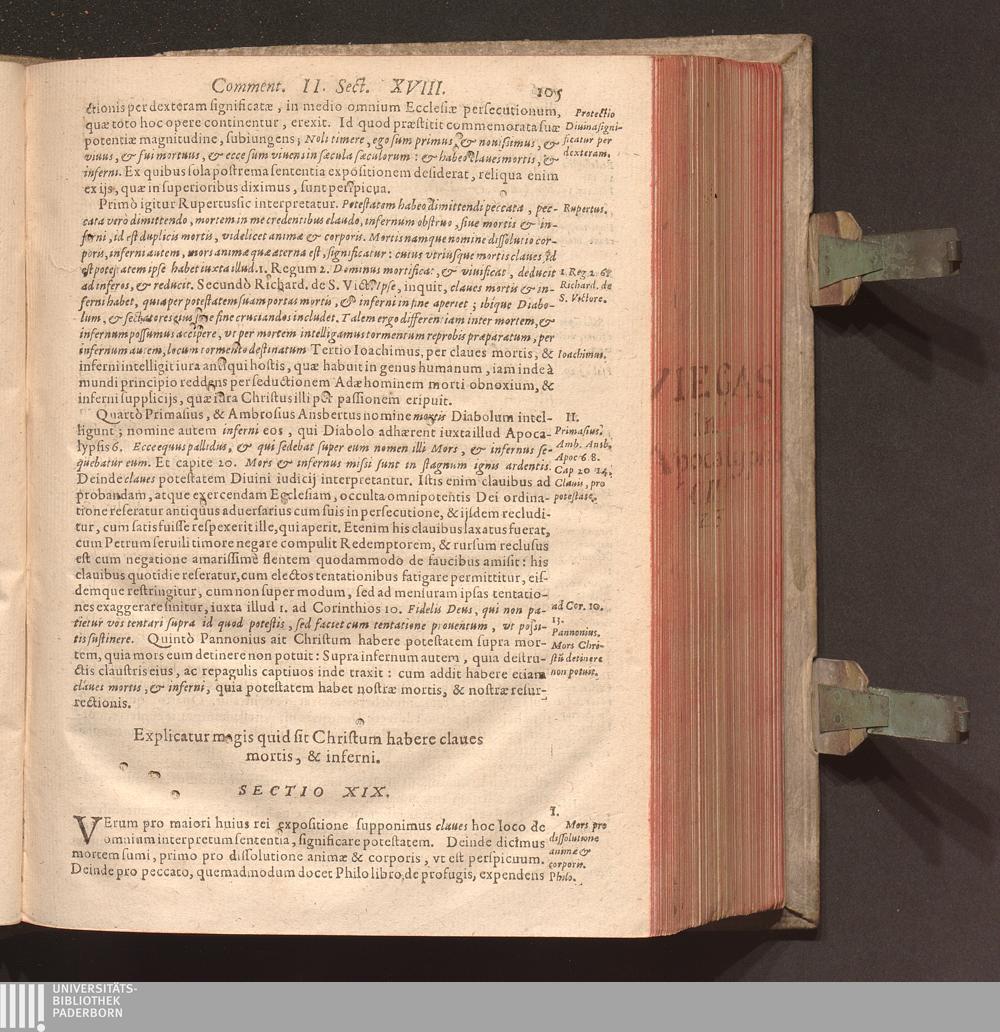 Comment. II. Sect. XVIII. 105
ctionis per dexteram significatæ, in medio omnium Ecclesiæ persecutionum,
quæ toto hoc opere continentur, erexit. Id quod præstitit commemorata suæ
potentiæ magnitudine, subiungens; Noli timere, ego sum primus, & nouissimus, &
viuus, & fui mortuus, & ecce sum viuens in sæcula sæculorum: & habeo claues mortis, &
inferni. Ex quibus sola postrema sententia expositionem desiderat, reliqua enim
ex ijs, quæ in superioribus diximus, sunt perspicua.
Protectio
Diuina signi-
ficatur per
dexteram.
Primò igitur Rupertus sic interpretatur. Potestatem habeo dimittendi peccata, pec-
cata verò dimittendo, mortem in me credentibus claudo, infernum obstruo, siue mortis & in-
ferni, id est duplicis mortis, videlicet animæ & corporis. Mortis namque nomine dissolutio cor-
poris, inferni autem, mors animæ quæ æterna est, significatur: cuius vtriusque mortis claues, id
est potestatem ipse habet iuxta illud. 1. Regum 2. Dominus mortificat, & viuificat, deducit
ad inferos, & reducit. Secundò Richard. de S. Vict. Ipse, inquit, claues mortis & in-
ferni habet, quia per potestatem suam portas mortis, & inferni in fine aperiet; ibique Diabo-
lum, & sectatores eius sine fine cruciandos includet. Talem ergo differentiam inter mortem, &
infernum possumus accipere, vt per mortem intelligamus tormentum reprobis præparatum, per
infernum autem, locum tormento destinatum Tertio Ioachimus, per claues mortis, &
inferni intelligit iura antiqui hostis, quæ habuit in genus humanum, iam inde à
mundi principio reddens per seductionem Adæ hominem morti obnoxium, &
inferni supplicijs, quæ iura Christus illi post passionem eripuit.
Rupertus.
1. Reg 2. 6.
Richard. de
S. Victore.
Ioachimus.
Quartò Primasius, & Ambrosius Ansbertus nomine mortis Diabolum intel-
ligunt; nomine autem inferni eos, qui Diabolo adhærent iuxta illud Apoca-
lypsis 6. Ecce equus pallidus, & qui sedebat super eum nomen illi Mors, & infernus se-
quebatur eum. Et capite 20. Mors & infernus missi sunt in stagnum ignis ardentis.
Deinde claues potestatem Diuini iudicij interpretantur. Istis enim clauibus ad
probandam, atque exercendam Ecclesiam, occulta omnipotentis Dei ordina-
tione reseratur antiquus aduersarius cum suis in persecutione, & ijsdem recludi-
tur, cum satis fuisse respexerit ille, qui aperit. Etenim his clauibus laxatus fuerat,
cum Petrum seruili timore negare compulit Redemptorem, & rursum reclusus
est cum negatione amarissimè flentem quodammodo de faucibus amisit: his
clauibus quotidie reseratur, cum electos tentationibus fatigare permittitur, eis-
demque restringitur, cum non super modum, sed ad mensuram ipsas tentatio-
nes exaggerare sinitur, iuxta illud 1. ad Corinthios 10. Fidelis Deus, qui non pa-
tietur vos tentari supra id quod potestis, sed faciet cum tentatione prouentum, vt possi-
tis sustinere. Quintò Pannonius ait Christum habere potestatem supra mor-
tem, quia mors eum detinere non potuit: Supra infernum autem, quia destru-
ctis claustris eius, ac repagulis captiuos inde traxit: cum addit habere etiam
claues mortis, & inferni, quia potestatem habet nostræ mortis, & nostræ resur-
rectionis.
II.
Primasius.
Amb. Ansb.
Apoc 6. 8.
Cap 20 14.
Clauis, pro
potestate.
ad Cor. 10.
13.
Pannonius.
Mors Chri-
stū detinere
non potuit.
Explicatur magis quid sit Christum habere claues
mortis, & inferni.
SECTIO XIX.
VErum pro maiori huius rei expositione supponimus claues hoc loco de
omnium interpretum sententia, significare potestatem. Deinde dicimus
mortem sumi, primo pro dissolutione animæ & corporis, vt est perspicuum.
Deinde pro peccato, quemadmodum docet Philo libro, de profugis, expendens
I.
Mors pro
dissolutione
animæ &
corporis.
Philo.
VIEGAS
In
Apocal
UNIVERSITÄTS-
BIBLIOTHEK
PADERBORN